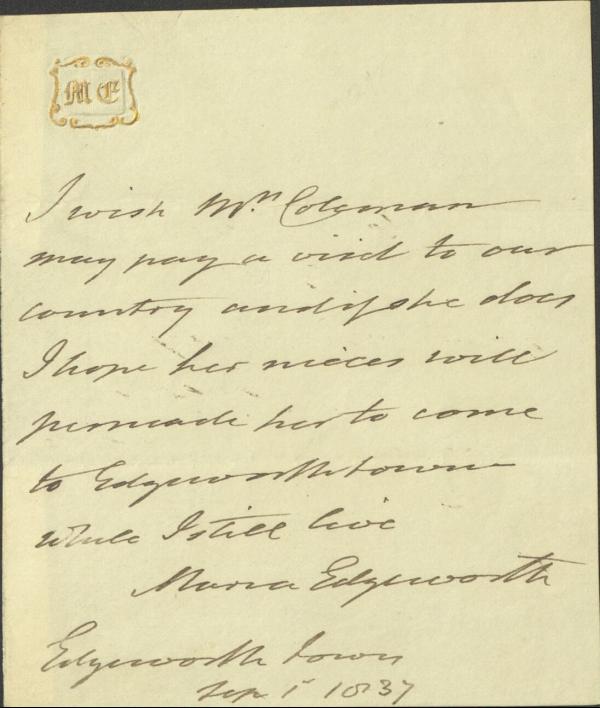 M E
I wish Mrs Coleman
may pay a visit to our
country and if she does
I hope her nieces will
persuade her to come
to Edgeworthtown
while I still live
Maria Edgeworth
Edgeworth Town
Sep 1st 1837